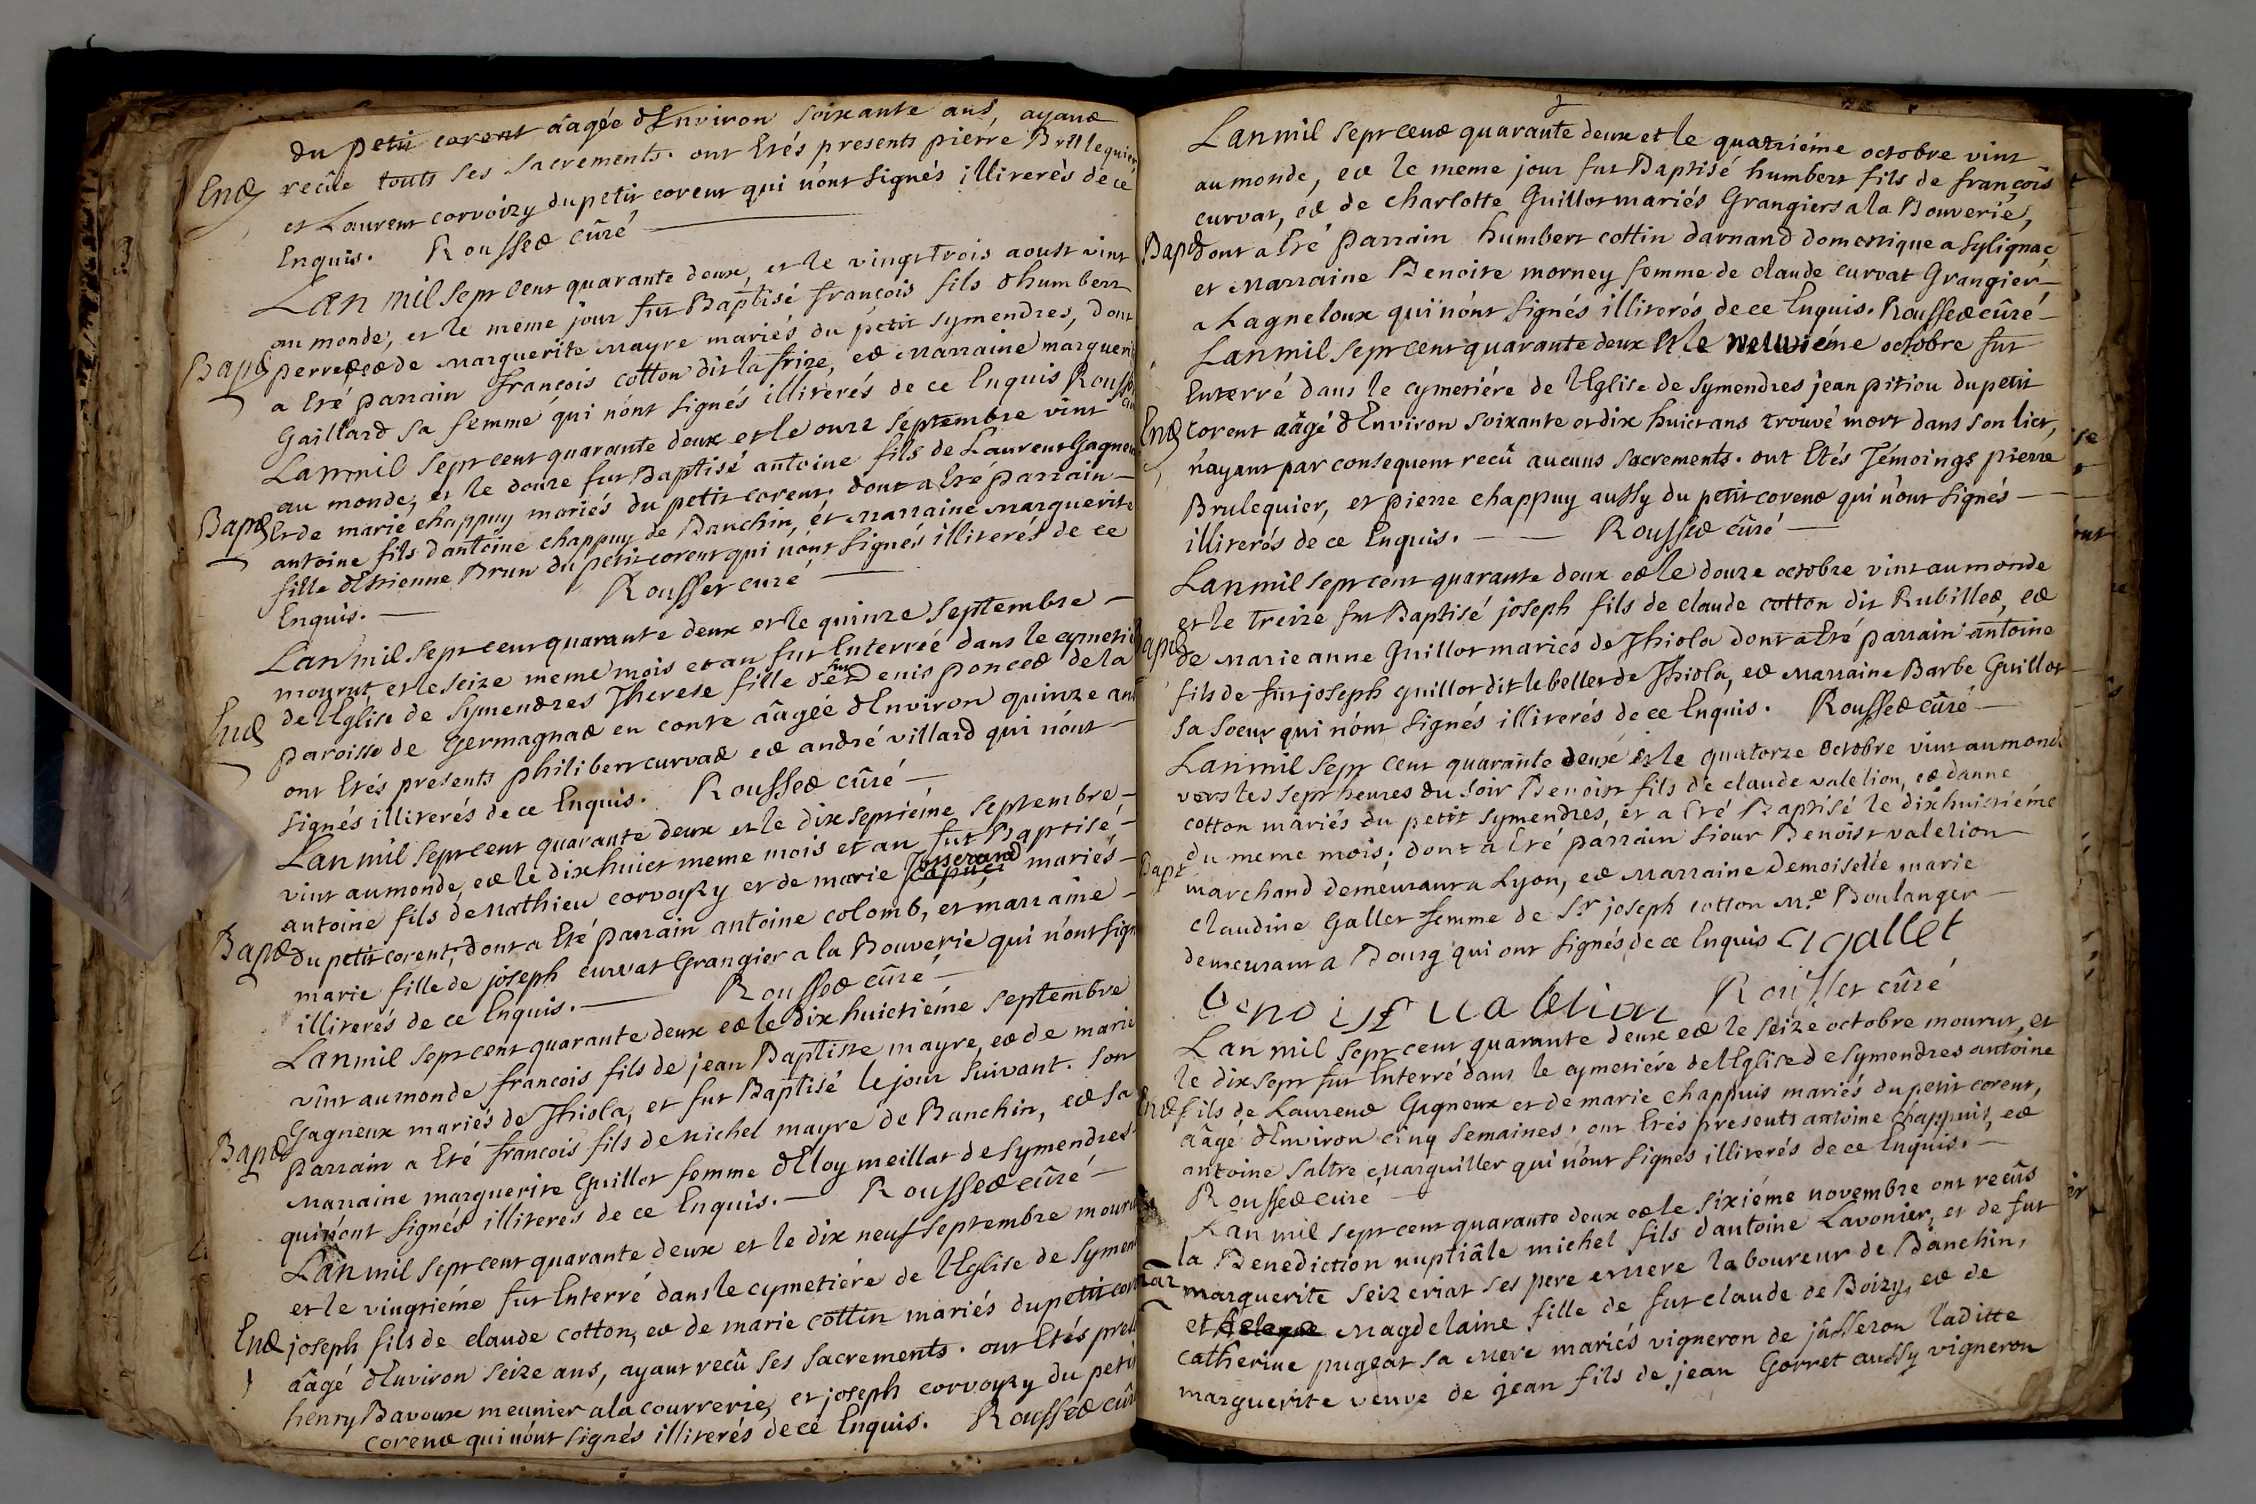 du petit corent aâgée dEnviron soixante ans, ayant
Ent
recüe touts ses sacrements. ont Etés presents pierre Brulequier
et Laurent corvoizy du petit corent qui n'ont signés illiterés de ce
Enquis. Rousset cûré
Lan mil sept cent quarante deux, et le vingt trois aoust vint
au monde, et le meme jour fut Baptisé françois fils dhumbert
Bapt
perret, et de Marguerite Mayre mariés du petit symendres, dont
a Eté parrain françois cotton dit la frize, et Marraine marguerite
Gaillard sa femme qui n'ont signés illiterés de ce Enquis Rousset cûré
Lan mil sept cent quarante deux et le onze septembre vint
au monde, et le douze fut Baptisé antoine fils de Laurent Gagneux
Bapt
Et de marie chappuy mariés du petit corent, dont a Eté parrain
antoine fils dantoine chappuy de Banchin, et Marraine Marguerite
fille dEstienne Brun du petit corent qui n'ont signés illiterés de ce
Enquis. Rousset curé
Lan mil sept cent quarante deux et le quinze septembre
mourut, et le seize meme mois et an fut Enterréé dans le cymetiére
de lEglise de Symendres Therese fille de fut Denis poncet de la
Ent
paroisse de Germagnat en conte aâgéé dEnviron quinze ans
ont Etés presents philibert curvat et andré villard qui n'ont
signés illiterés de ce Enquis. Rousset cûré
Lan mil sept cent quarante deux et le dix septiéme septembre
vint au monde, et le dixhuict meme mois et an fut Baptisé
antoine fils de Mathieu corvoyzy et de marie Josserand mariés
Bapt
du petit corent, dont a Eté parrain antoine colomb, et marraine
marie fille de joseph curvat Grangier a la Bouverie qui n'ont signés
illiterés de ce Enquis. Rousset cûré
Lan mil sept cent quarante deux et le dix huictiéme septembre
vint au monde francois fils de jean Baptiste mayre, et de marie
Gagneux mariés de Thiola, et fut Baptisé le jour suivant. son
Bapt
parrain a Eté francois fils de Michel mayre de Banchin, et sa
Marraine marguerite Guillot femme dEloy meillat de symendres
qui n'ont signés illiterés de ce Enquis. Rousset cûré
Lan mil sept cent quarante deux et le dix neuf septembre mourut
et le vingtiéme fut Enterré dans le cymetiére de lEglise de Symendres
Ent
joseph fils de claude cotton, et de marie cottin mariés du petit corent
aâgé dEnviron seize ans, ayant recû ses sacrements. ont Etés presents
henry Bavoux meunier a la courrerie, et joseph corvoyzy du petit
corent qui n'ont signés illiterés de ce Enquis. Rousset cûré
Lan mil sept cent quarante deux et le quatriéme octobre vint
au monde, et le meme jour fut Baptisé humbert fils de françois
curvat, et de charlotte Guillot mariés Grangiers a la Bouverie,
Bapt
dont a Eté parrain humbert cottin darnand domestique a sylignac
et Marraine Benoite morney femme de claude curvat Grangier
a Lagneloux qui n'ont signés illiterés de ce Enquis. Rousset cûré
Lan mil sept cent quarante deux Et le neuviéme octobre fut
Enterré dans le cymetiére de lEglise de Symendres jean pitiou du petit
Ent
corent aâgé dEnviron soixante et dix huict ans trouvé mort dans son lict,
n'ayant par consequent recû aucuns sacrements. ont Etés Témoings pierre
Brulequier, et pierre chappuy aussy du petit corent qui n'ont signés
illiterés de ce Enquis. Rousset cûré
Lan mil sept cent quarante deux et le douze octobre vint au monde
et le treize fut Baptisé joseph fils de claude cotton dit Rubillet, et
Bapt
de Marie anne Guillot mariés de Thiola dont a Eté parrain antoine
fils de fut joseph guillot dit le bellet de Thiola, et Marraine Barbe Guillot
sa soeur qui n'ont signés illiterés de ce Enquis. Rousset cûré
Lan mil sept cent quarante deux et le quatorze octobre vint au monde
vers les sept heures du soir Benoist fils de claude valelion, et danne
cotton mâriés du petit symendres, et a Eté Baptisé le dixhuictiéme
du meme mois; dont a Eté parrain sieur Benoist valelion
Bapt
marchand demeurant a Lyon, et Marraine Demoiselle marie
claudine Gallet femme de Sr. joseph cotton M.e Boulanger
demeurant a Bourg qui ont signés de ce Enquis Cl gallet
benoist valelion Rousset cûré
Lan mil sept cent quarante deux et le seize octobre mourut, et
le dix sept fut Enterré dans le cymetiére de lEglise de symendres antoine
Ent
fils de Laurent Gagneux et de marie chappuis mariés du petit corent,
aâgé dEnviron cinq semaines, ont Etés presents antoine chappuis, et
antoine saltre Marguiller qui n'ont signés illiterés de ce Enquis.
Rousset curé
Lan mil sept cent quarante deux et le sixiéme novembre ont recûs
la Benediction nuptiâle michel fils dantoine Lavonier, et de fut
Mar
marguerite seizeriat ses pere et Mere laboureur de Banchin,
et Magdelaine fille de fut claude de Boizy, et de
catherine pugeat sa Mere mariés vigneron de jâsseron laditte
marguerite veuve de jean fils de jean Gorret aussy vigneron